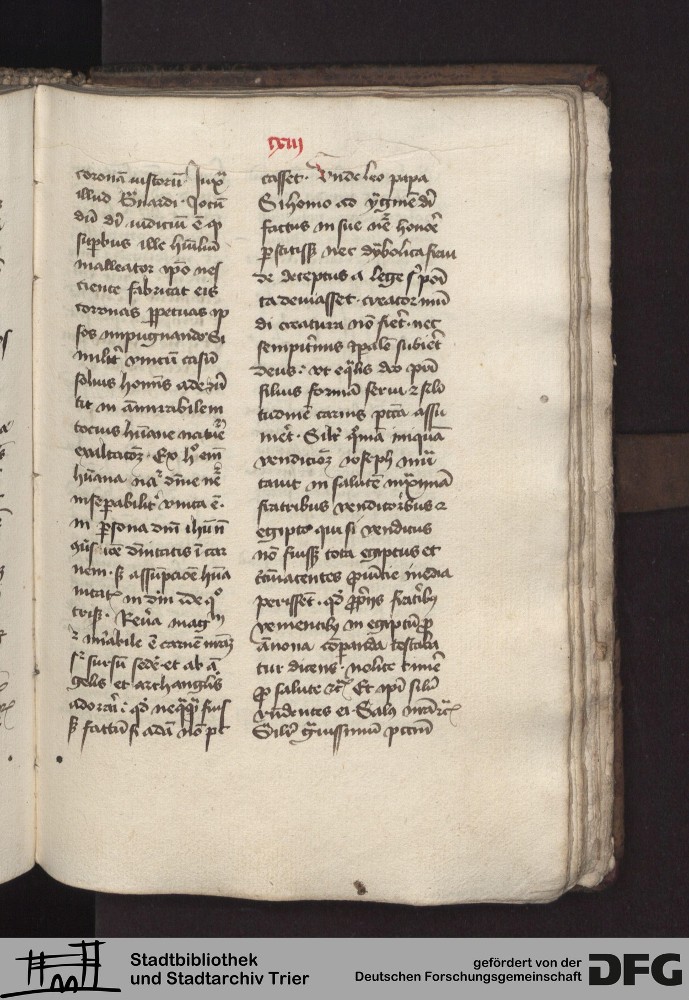 cxiii
coronam iustorum Iuxta
illud Bernardi Iocun
dum dei iudicium est quod
superbus ille humilium
malleator ipso nes
ciente fabricat eis
coronas perpetuas ip
sos impugnando Si
militer unicum casum
solius hominis
tit in admirabilem
tocius humane nature
exaltacionem Ex hoc enim
humana natura diuine nature
inseperabiliter unita est
in persona domini ihesu non
conuersione diuinitatis in car
nem sed assumpcione huma
nitatis in deum
Reuera mag
mirabile est carnem nostram
sursum sedere et ab an
gelis et archangelis
adorari quod nequaquam fuis
set factum si adam non pec
casset Vnde leo papa
Si homo ad ymaginem dei
factus in sue nature honore
perstitisset nec dyabolica frau
de deceptus a lege sibi posi
ta deuiasset creator mun
di creatura non fieret nec
sempiternus temporale subiret
deus vt equalis deo patri
filius formam serui et simili
tudinem carnis peccati assu
meret Similiter quoniam iniqua
vendicionem ioseph mu
tauit in salutem maximam
fratribus venditoribus et
egipto qui si venditus
non fuisset tota egiptus et
circumiacentes prouincie inedia
perissent quod propriis fratribus
venientibus in egiptum pro
annona comparanda testaba
tur dicens nolite timere
pro salute etc Et ipsi simul
videntes ei Salus nostra etc
Similiter grauissimum peccatum
Stadtbibliothek
und Stadtarchiv Trier
gefördert von der
Deutschen Forschungsgemeinschaft
DFG